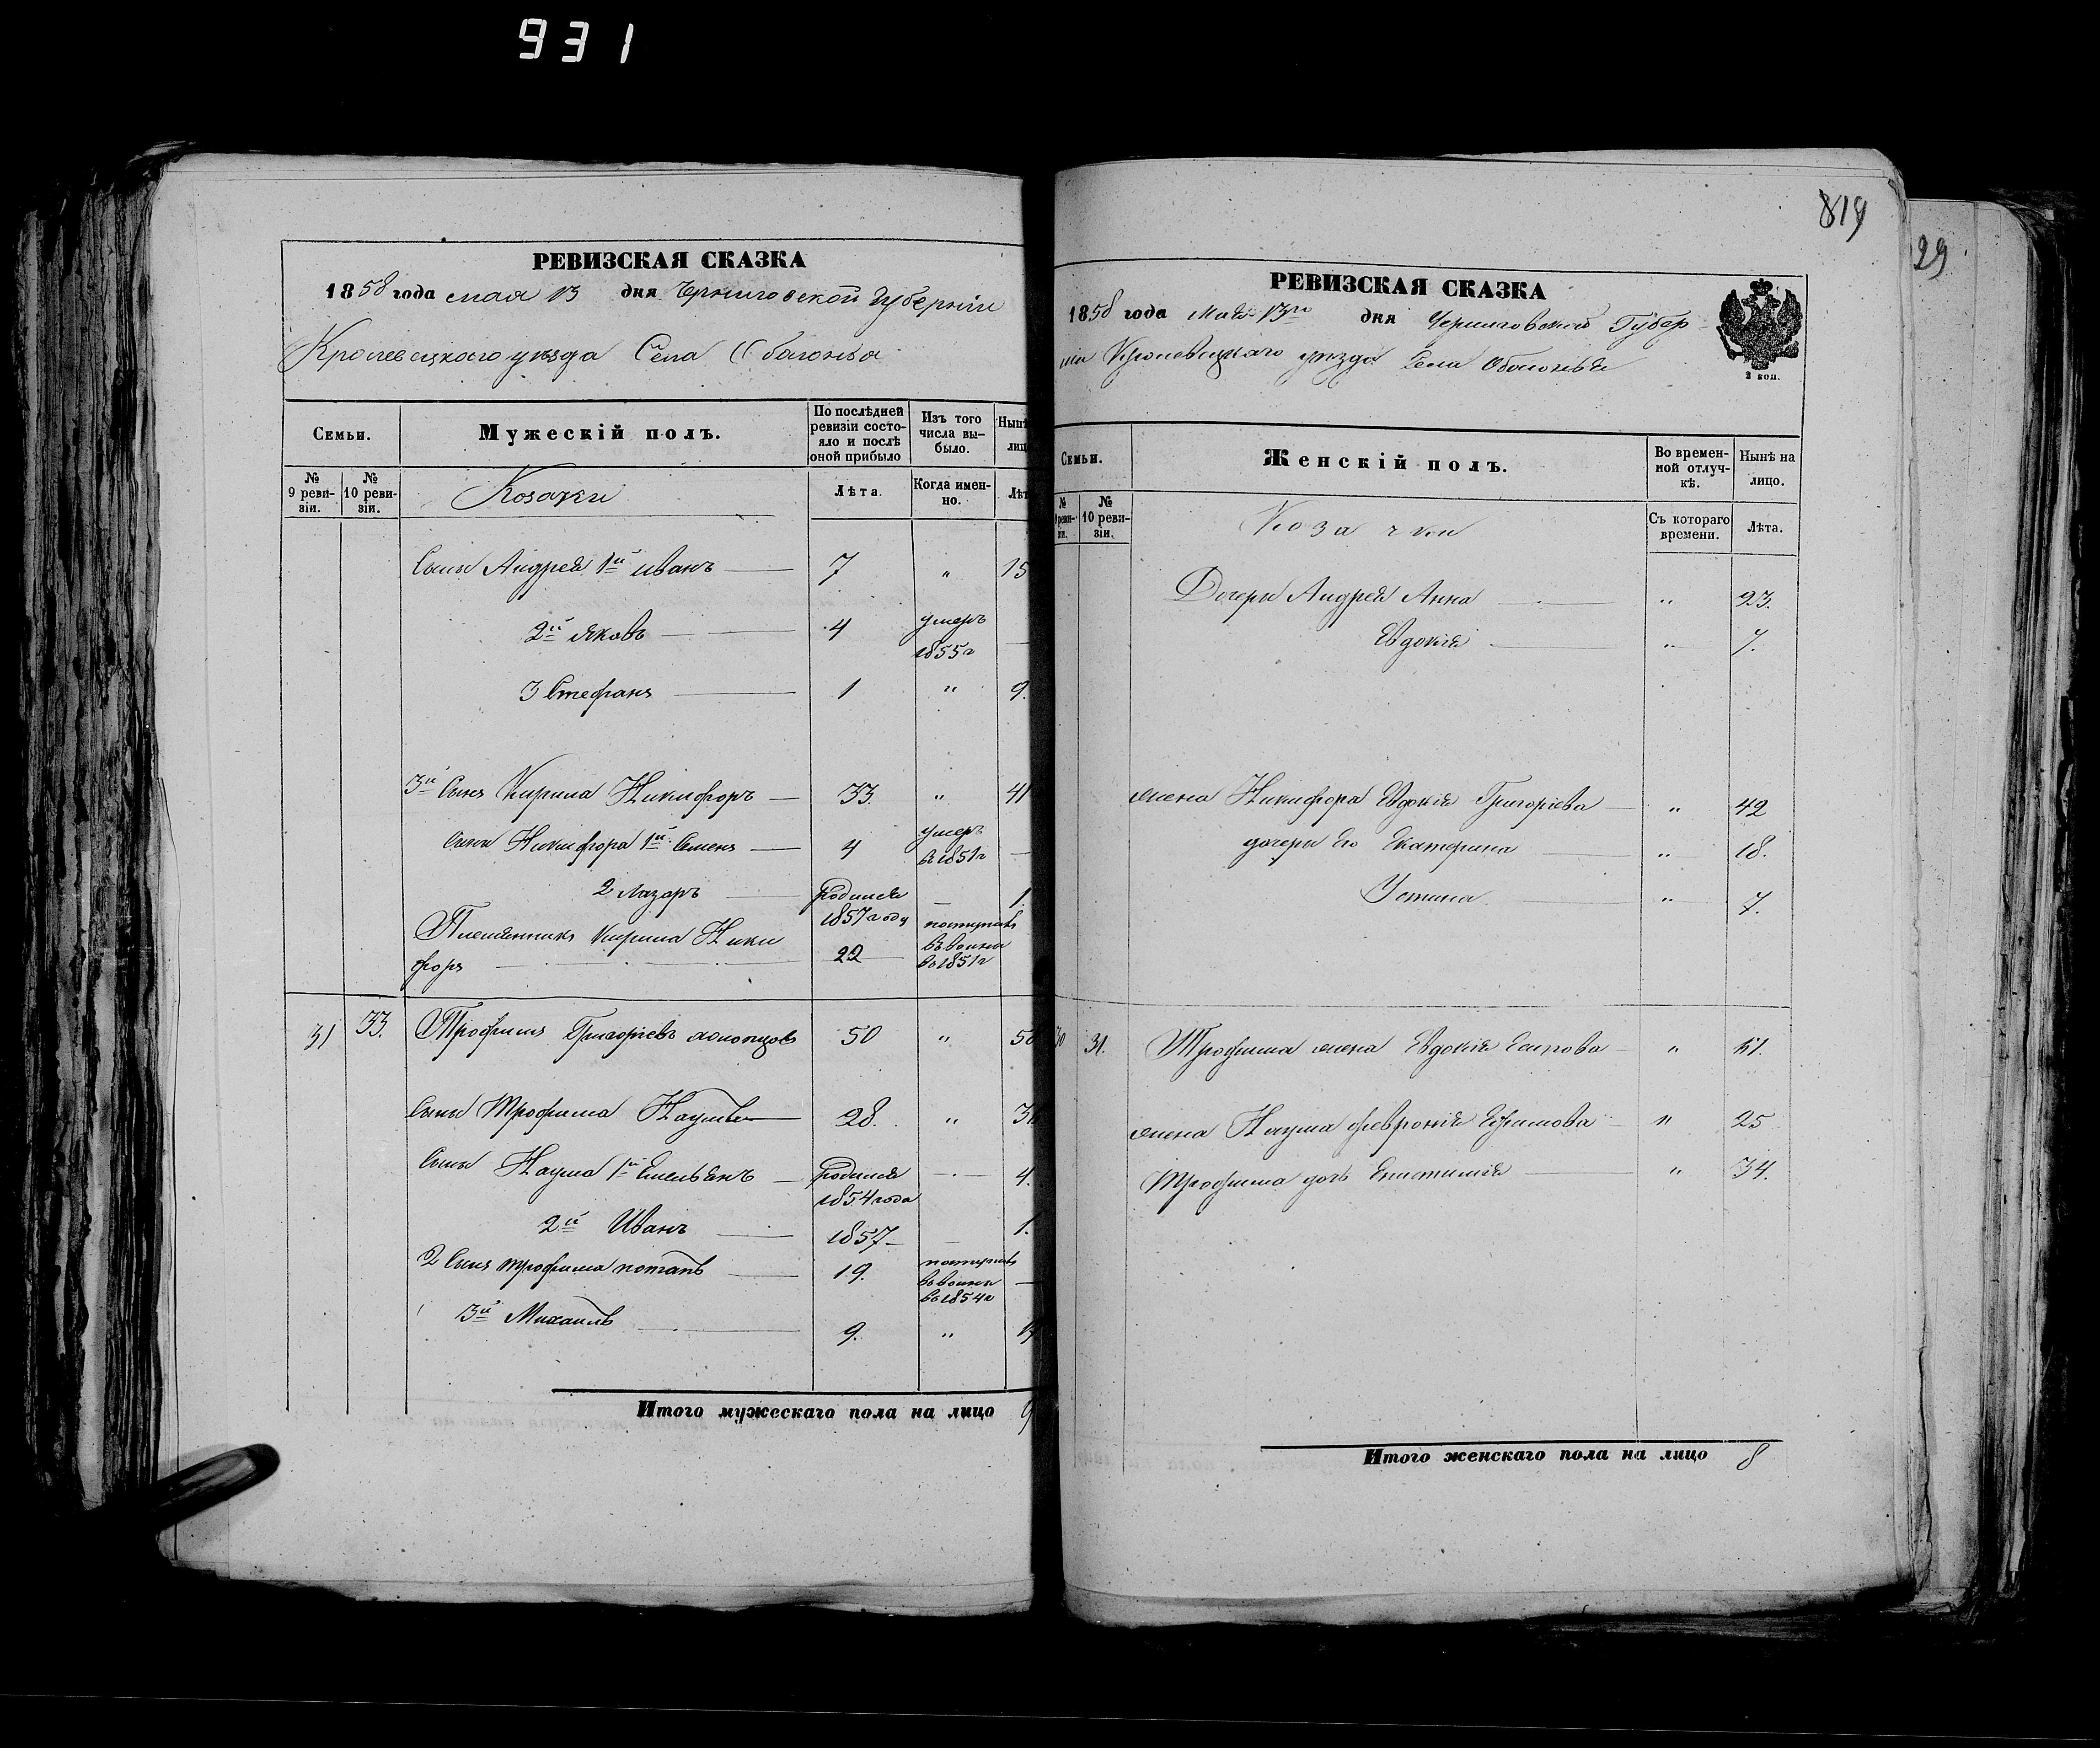 931
РЕВИЗСКАЯ СКАЗКА
1858 года мая 13 дня Черниговской Губерніи
Кролевецкого уезда Села Оболонья
Семьи.
Мужескій полъ.
По послѣдней ревизіи состояло и послѣ оной прибыло
Изъ того числа выбыло.
Нынѣ лиц
№ 9 ревизіи.
№ 10 ревизіи.
Козаки
Лѣта.
Когда именно.
Лѣт
Сыны Андрея 1й иванъ 7 " 15
2й яковъ 4 умеръ 1855г
3 Стефанъ 1 " 9.
3й Сынъ Кирила Никифоръ 33. " 41
Сыны Никифора 1й Семенъ 4 умеръ в 1851г
2 Лазаръ родился 1857 году 1
Племянникъ Кирила Ники
форъ 22 поступилъ въ воины в 1851г
31 33. Трофимъ Григоріевъ 50 " 5
Сыны Трофима Наумъ 28. " 3
Сыны Наума 1й Емельянъ родился 1854 года 4.
2й Иванъ 1857 1.
2 Сынъ трофима потапъ 19. поступилъ въ воины в 1854г
3й Михаилъ 9. "
Итого мужескаго пола на лицо 9
819
29
РЕВИЗСКАЯ СКАЗКА
1858 года Мая 13го дня Черниговской Губер
ніи Кролевецкаго уезда Села Оболонья
2 коп.
Семьи.
Женскій полъ.
Во временной отлучкѣ.
Нынѣ на лицо.
№ реви- зи.
№ 10 ревизіи.
Козачки
Съ котораго времени.
Лѣта.
Дочери Андрея Анна " 23.
Евдокія " 7.
жена Никифора Евдокія Григоріева " 42
дочери Его Екатерина " 18.
Устина " 7.
30 31. Трофима жена Евдокія " 51.
жена Наума феврония Ефимова " 25
Трофима дочь Епистимия " 34.
Итого женскаго пола на лицо 8